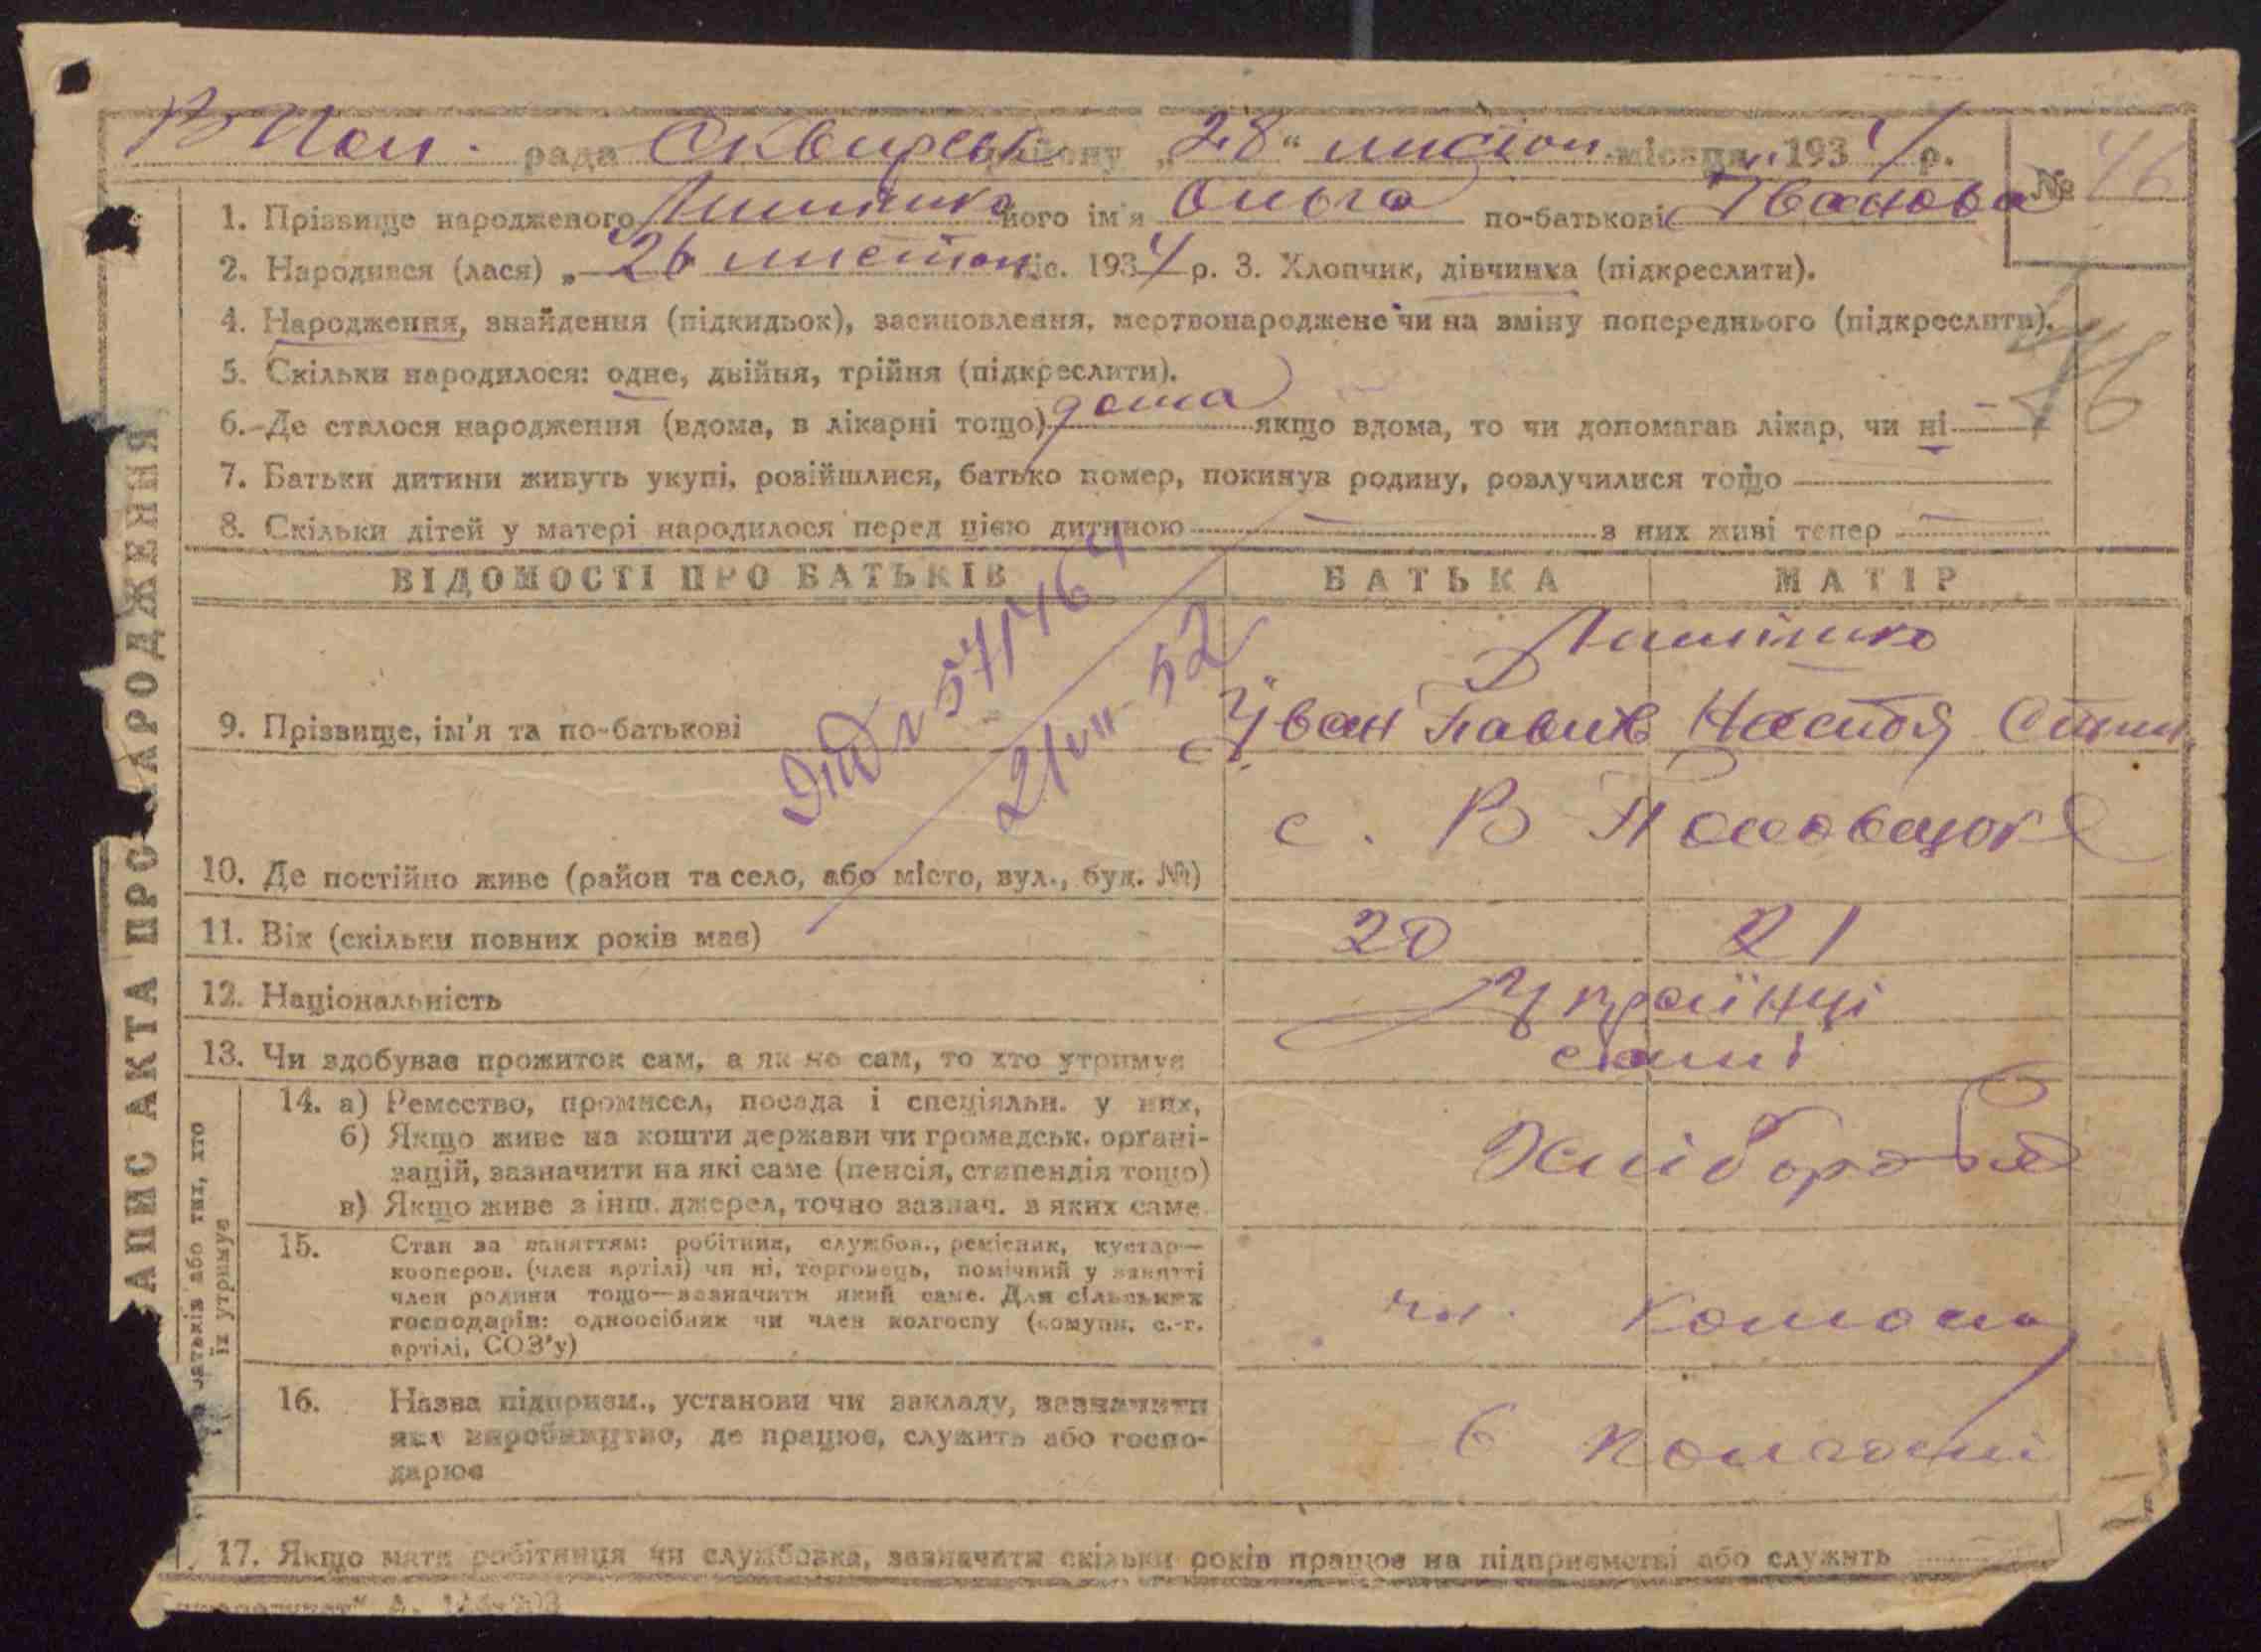 В Пол. рада Сквирськ району „28" листоп місяця 1934 р. № 46
1. Прізвище народженого його ім'я Ольга по-батькові Іванова
2. Народився (лася) „26 листоп міс. 1934 р. 3. Хлопчик, дівчинка (підкреслити).
4. Народження, знайдення (підкидьок), засиновлення, мертвонароджене чи на зміну попереднього (підкреслити).
46
5. Скільки народилося: одне, двійня, трійня (підкреслити).
6. Де сталося народження (вдома, в лікарні тощо) дома якщо вдома, то чи допомагав лікар, чи ні
7. Батьки дитини живуть укупі, розійшлися, батько помер, покинув родину, розлучилися тощо
8. Скільки дітей у матері народилося перед цією дитиною з них живі тепер
ВІДОМОСТІ ПРО БАТЬКІВ БАТЬКА МАТІР
9. Прізвище, ім'я та по-батькові Іван Павлів Настя Степ
21/VII-52
с. В Половецьке
10. Де постійно живе (район та село, або місто, вул., буд. №)
11. Вік (скільки повних років має) 20 21
12. Національність Українці
13. Чи здобуває прожиток сам, а як не сам, то хто утримує самі
14. а) Ремество, промисел, посада і спеціяльн. у них,
б) Якщо живе на кошти держави чи громадськ. органі-
зацій, зазначити на які саме (пенсія, стипендія тощо)
в) Якщо живе з інш. джерел, точно зазнач. з яких саме
Хлібороби
15. Стан за заняттям: робітник, службов., ремісник, кустар—
кооперов. (член артілі) чи ні, торговець, помічний у занятті
член родини тощо—зазначити який саме. Для сільських
господарів: одноосібник чи член колгоспу (комуни, с.-г.
артілі, СОЗ'у)
чл. колгосп
16. Назва підприєм., установи чи закладу, зазначити
яке виробництво, де працює, служить або госпо-
дарює
в колгоспі
17. Якщо мати робітниця чи службовка, зазначити скільки років працює на підприємстві або служить
ЗАПИС АКТА ПРО НАРОДЖЕННЯ
батьків або тих, хто
їх утримує